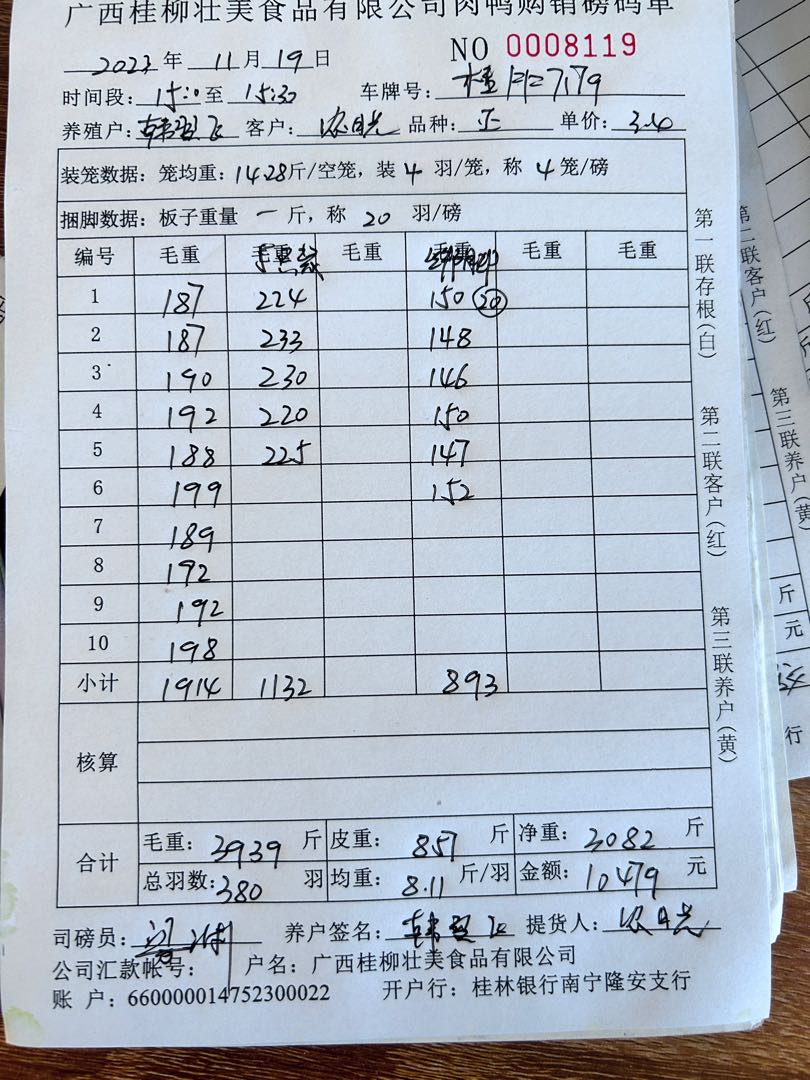 广西桂柳壮美食品有限公司肉鸭购销磅码单
2023 年 11 月 19 日 NO 0008119
时间段: 15:0 至 15:30 车牌号:
养殖户: 客户: 农日光 品种: 正 单价: 3.4
装笼数据: 笼均重: 14.28 斤/空笼, 装 4 羽/笼, 称 4 笼/磅
捆脚数据: 板子重量 一 斤, 称 20 羽/磅
编号 毛重 毛重 毛重 毛重 毛重 毛重
1 187 224 150 20
2 187 233 148
3 190 230 146
4 192 220 150
5 188 225 147
6 199 152
7 189
8 192
9 192
10 198
小计 1914 1132 893
核算
合计 毛重: 3939 斤 皮重: 857 斤 净重: 3082 斤
总羽数: 380 羽 均重: 8.11 斤/羽 金额: 10479 元
司磅员: 养户签名: 提货人: 农日光
公司汇款帐号: 户名: 广西桂柳壮美食品有限公司
账 户: 660000014752300022 开户行: 桂林银行南宁隆安支行
第一联存根(白)
第二联客户(红)
第三联养户(黄)
第二联客户(红)
第三联养户(黄)
斤
元
行